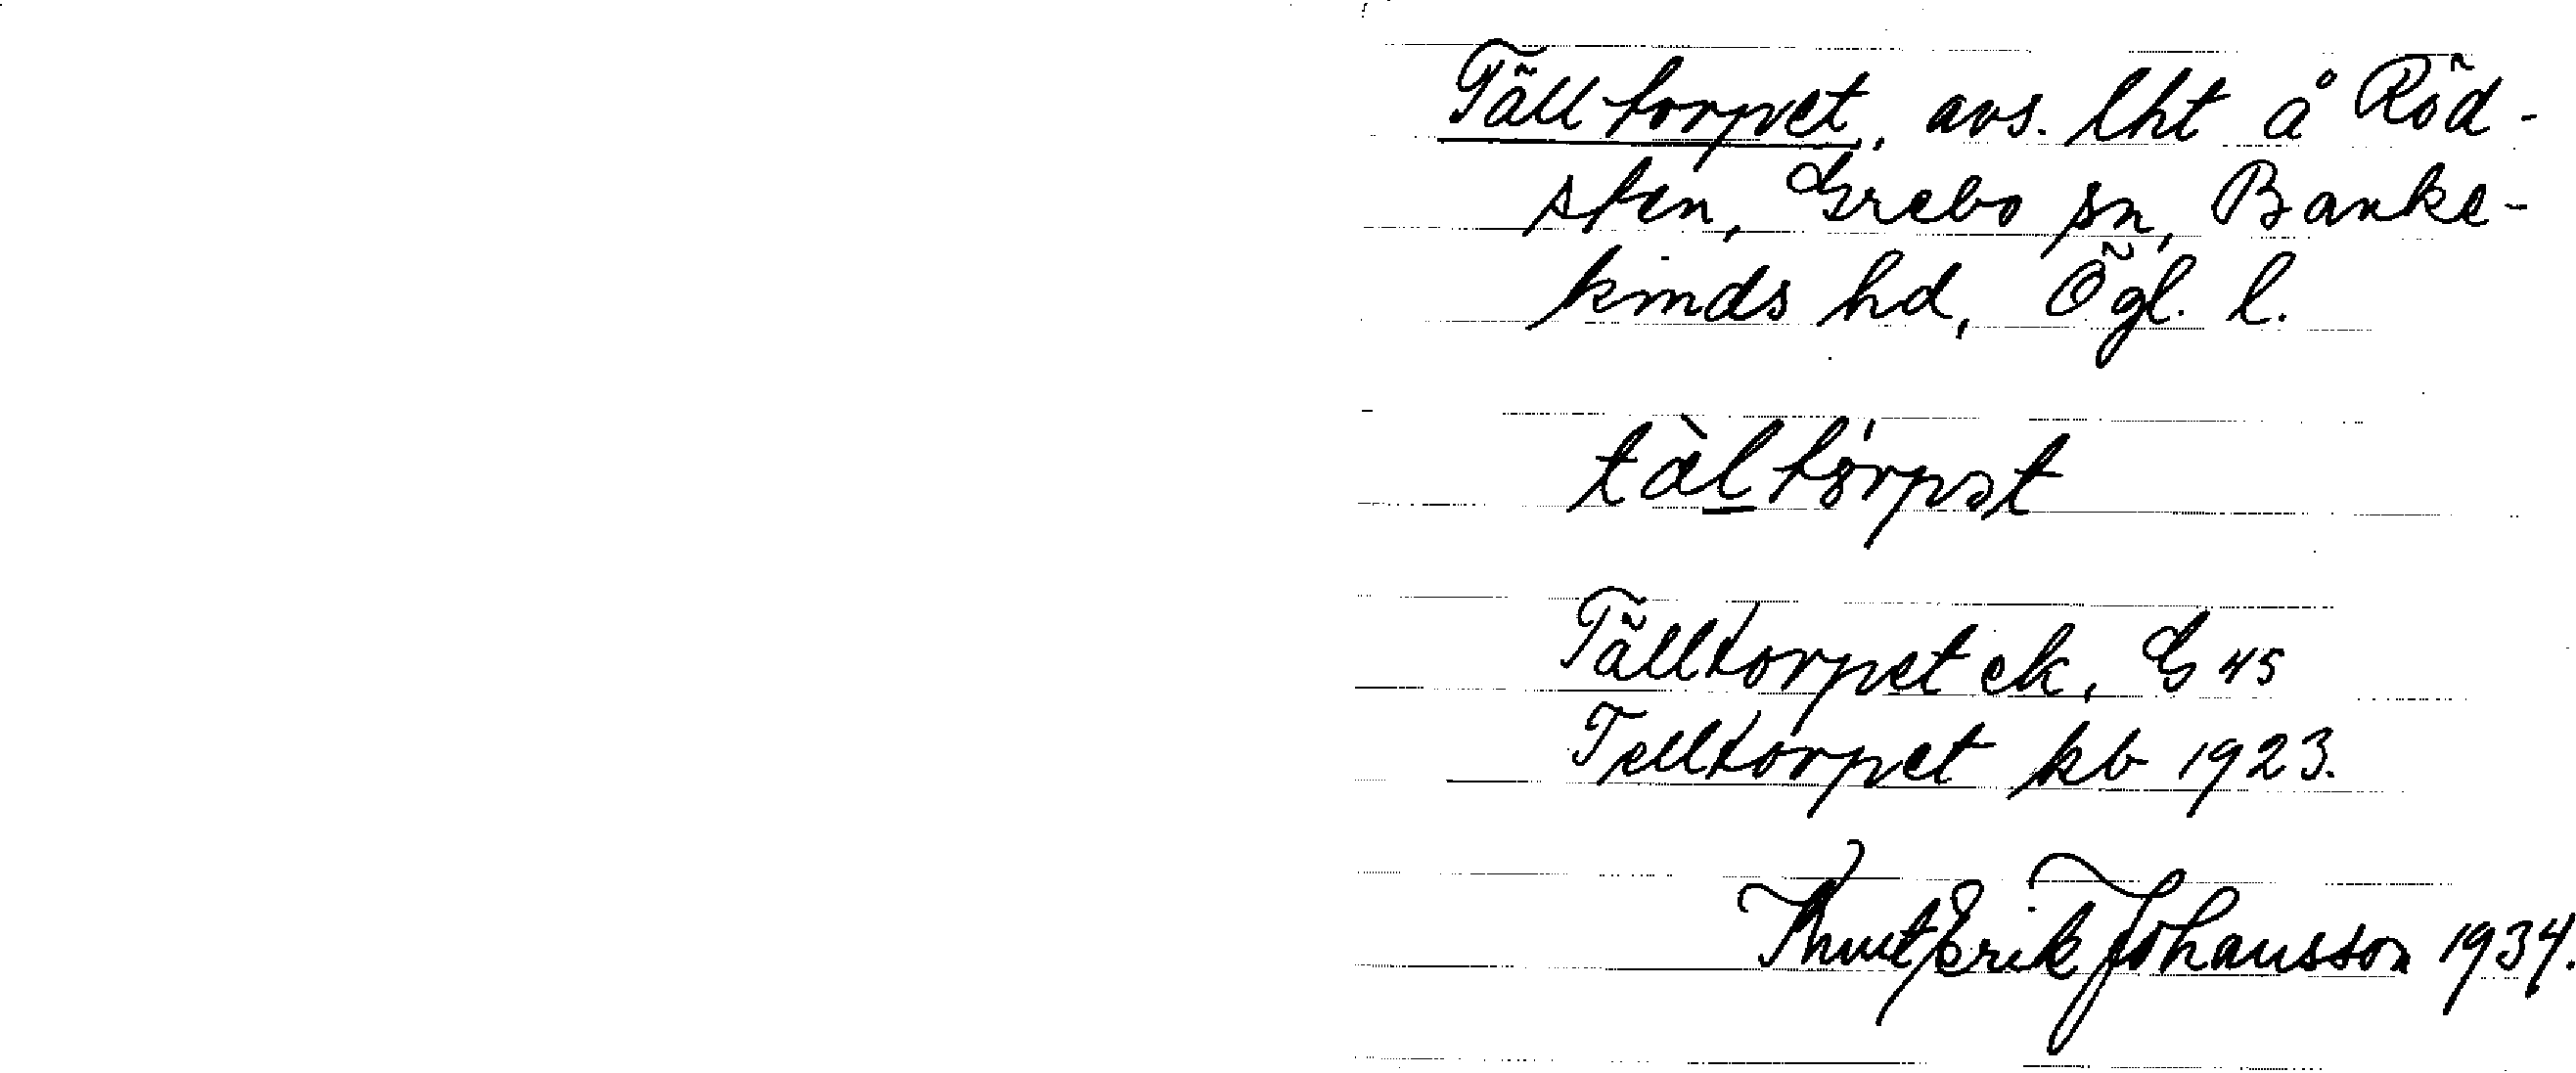 Tälltorpet, avs. lht å Röd-
sten, Grebo sn, Banke-
kinds hd, Ögl. l.
tæ̀ltórpət
Tälltorpet ek, G 45
Telltorpet kb 1923.
Knut Erik Johansson 1934.